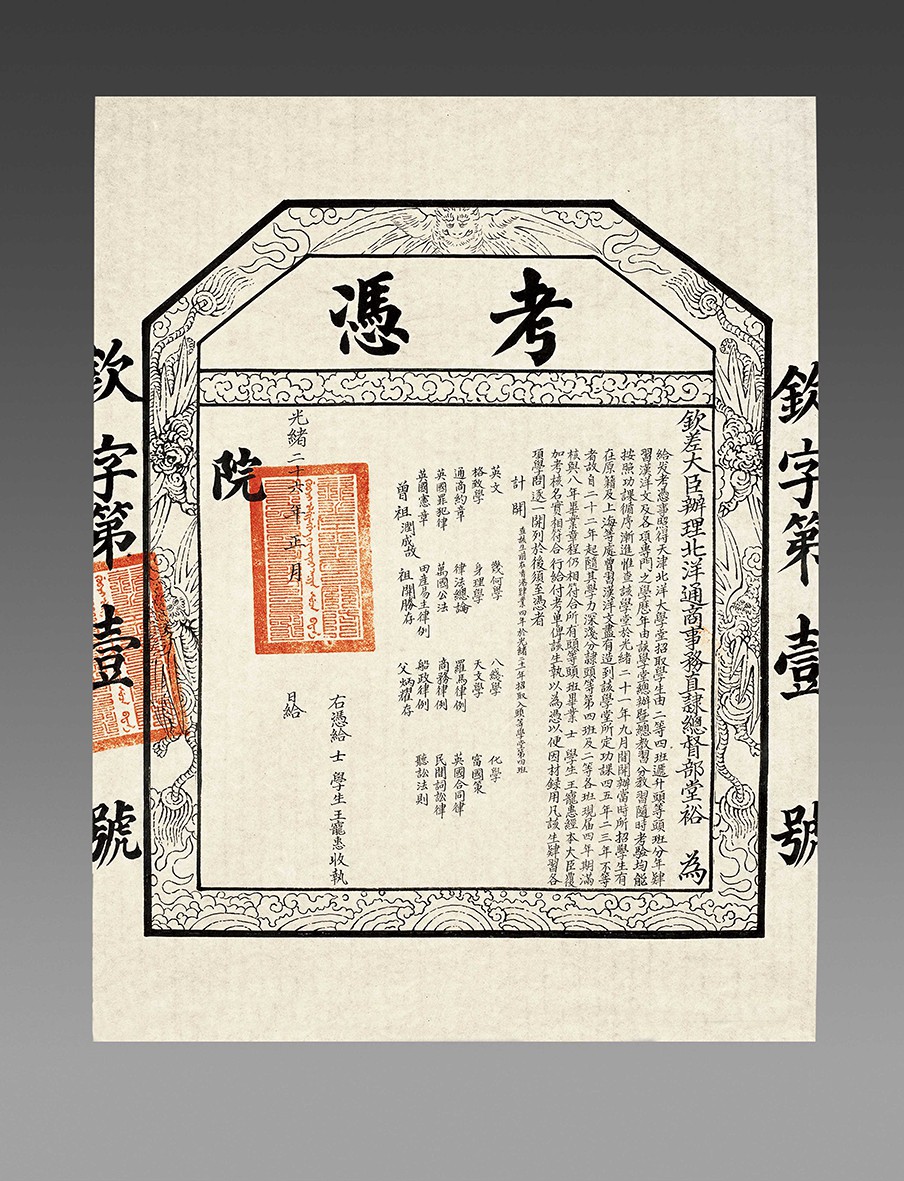 考憑
欽字第壹號
欽差大臣辦理北洋通商事務直隸總督部堂裕 為
給發考憑事照得天津北洋大學堂招取學生由二等四班遞升頭等頭班分年肄
習漢洋文及各項專門之學歷年由該學堂總辦暨總教習分教習隨時考驗均能
按照功課循序漸進惟查該學堂於光緒二十一年九月間開辦當時所招學生有
在原籍及上海等處曾習漢洋文藎有造到該學堂所定功課四五年二三年不等
者故自二十二年起隨其學力深淺分隸頭等第四班及二等各班現屆四年期滿
核與八年畢業章程仍相符合所有頭等頭班畢業 士 學生王寵惠經本大臣覆
加考核名實相符合行給付考單俾該生執以為憑以便因材録用凡該生肄習各
項學問逐一開列於後須至憑者
計開
英文 幾何學 八綫學 化學
格致學 身理學 天文學 富國策
通商約章 律法總論 羅馬律例 英國合同律
英國罪犯律 萬國公法 商務律例 民間詞訟律
英國憲章 田產易主律例 船政律例 聽訟法則
曾祖潤成故 祖開勝存 父炳耀存
右憑給 士 學生王寵惠收執
光緒二十六年正月 日給
院
欽字第壹號